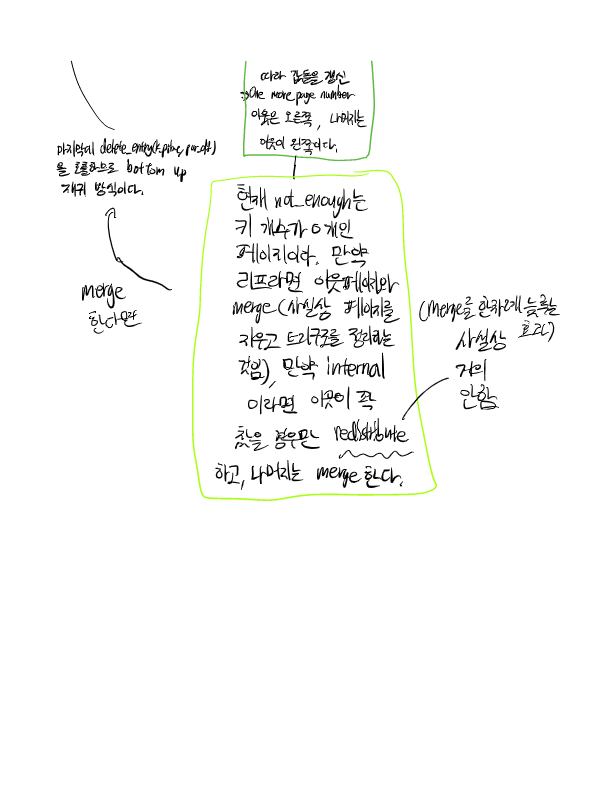 따라 값들을 갱신
→ One more page number
이웃은 오른쪽, 나머지는
이웃이 왼쪽이다.
마지막에 delete_entry(
을 호출하므로 bottom up
재귀 방식이다.
merge
한다면
현재 not_enough는
키 개수가 0개인
페이지이다. 만약
리프라면 이웃페이지와
merge(사실상 페이지를
지우고 트리구조를 정리하는
것임), 만약 internal
이라면 이웃이 꽉
찼을 경우만 redistribute
하고, 나머지는 merge 한다.
(merge를 한차례 늦추는
효과)
사실상
거의
안함